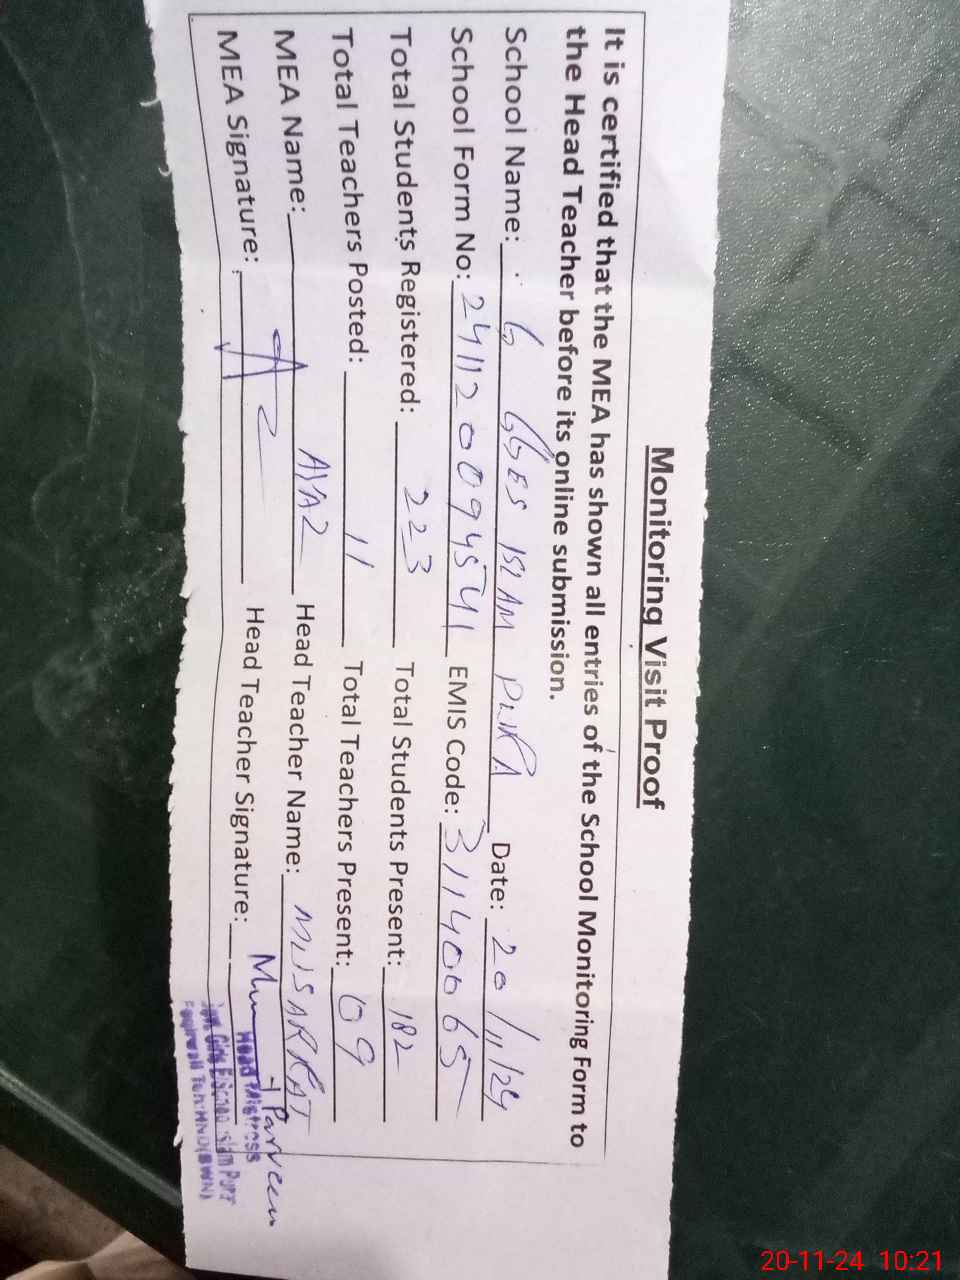 Monitoring Visit Proof
It is certified that the MEA has shown all entries of the School Monitoring Form to
the Head Teacher before its online submission.
School Name: G GGES ISLAM PURA Date: 20/11/24
School Form No: 241120094541 EMIS Code: 31140065
Total Students Registered: 223 Total Students Present: 182
Total Teachers Posted: 11 Total Teachers Present: 09
MEA Name: AYAZ Head Teacher Name: MUSARRAT Parveen
MEA Signature: Head Teacher Signature:
Head Mistress
20-11-24 10:21